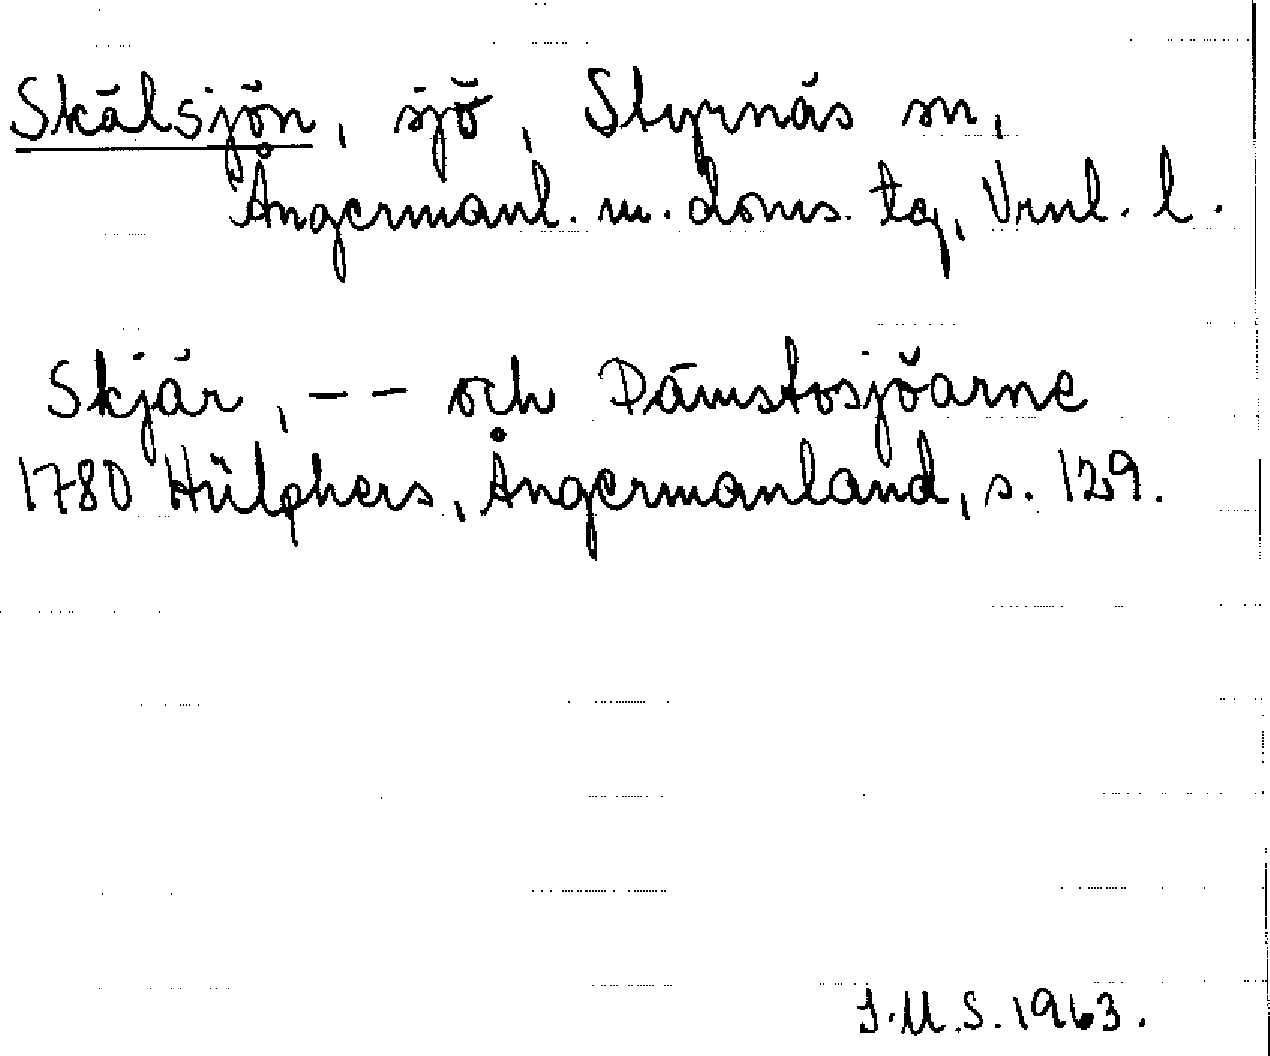 Skälsjön, sjö, Styrnäs sn,
Ångermanl. m. doms. tg, Vrnl. l.
Skjär, -- och Dämstosjöarne
1780 Hülphers, Ångermanland, s. 129.
I.M.S. 1963.